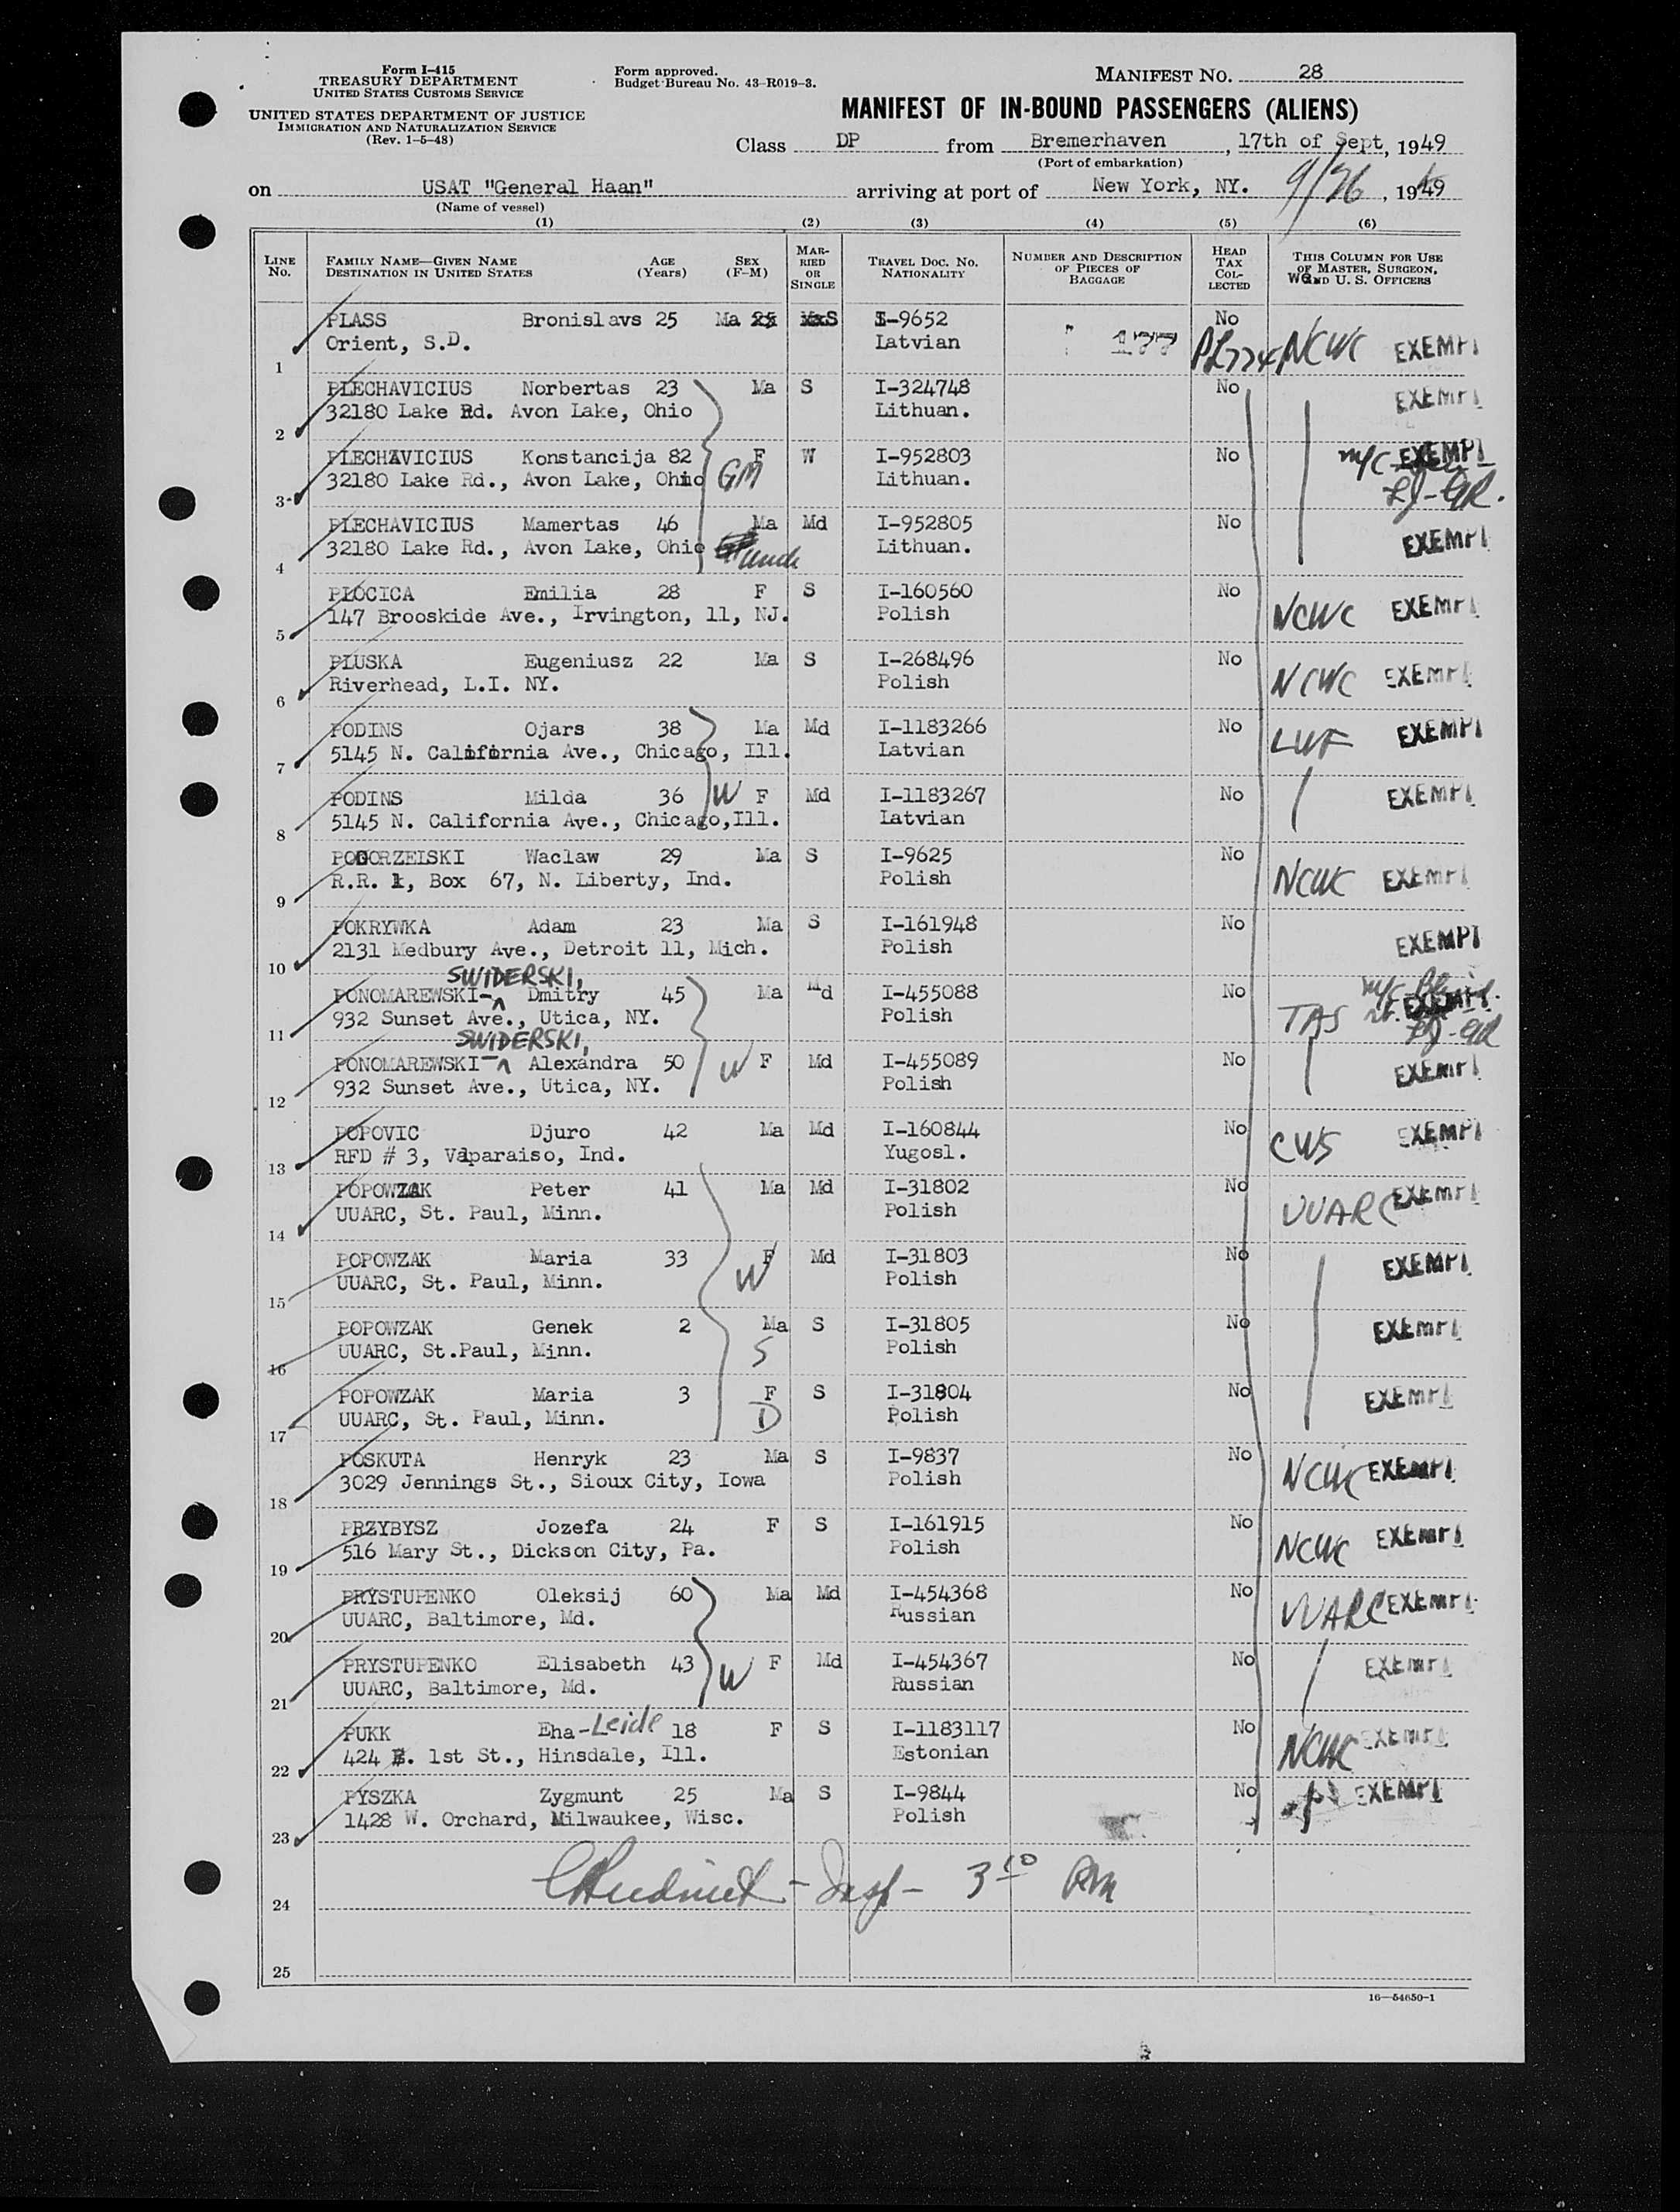 Form I-415
TREASURY DEPARTMENT
UNITED STATES CUSTOMS SERVICE
UNITED STATES DEPARTMENT OF JUSTICE
IMMIGRATION AND NATURALIZATION SERVICE
(Rev. 1-5-48)
Form approved.
Budget Bureau No. 43-R019-3.
MANIFEST NO. 28
MANIFEST OF IN-BOUND PASSENGERS (ALIENS)
Class DP from Bremerhaven, 17th of Sept, 1949
(Port of embarkation)
on USAT "General Haan" arriving at port of New York, NY. 9/26, 1949
(Name of vessel)
(1) (2) (3) (4) (5) (6)
LINE NO. FAMILY NAME—GIVEN NAME DESTINATION IN UNITED STATES AGE (Years) SEX (F-M) MARRIED OR SINGLE TRAVEL DOC. NO. NATIONALITY NUMBER AND DESCRIPTION OF PIECES OF BAGGAGE HEAD TAX COLLECTED THIS COLUMN FOR USE OF MASTER, SURGEON, AND U. S. OFFICERS
PLASS Bronislavs 25 Ma S I-9652 No
1 Orient, S.D. Latvian PL774 NCWC EXEMPT
PLECHAVICIUS Norbertas 23 Ma S I-324748 No EXEMPT
2 32180 Lake Rd. Avon Lake, Ohio Lithuan.
PLECHAVICIUS Konstancija 82 F W I-952803 No M/C EXEMPT
3 32180 Lake Rd., Avon Lake, Ohio GM Lithuan.
PLECHAVICIUS Mamertas 46 Ma Md I-952805 No
4 32180 Lake Rd., Avon Lake, Ohio Uncle Lithuan. EXEMPT
PLOCICA Emilia 28 F S I-160560 No
5 147 Brooskide Ave., Irvington, 11, NJ. Polish NCWC EXEMPT
PLUSKA Eugeniusz 22 Ma S I-268496 No
6 Riverhead, L.I. NY. Polish NCWC EXEMPT
PODINS Ojars 38 Ma Md I-1183266 No
7 5145 N. California Ave., Chicago, Ill. Latvian LWF EXEMPT
PODINS Milda 36 W F Md I-1183267 No EXEMPT
8 5145 N. California Ave., Chicago,Ill. Latvian
PODGORZELSKI Waclaw 29 Ma S I-9625 No
9 R.R. 1, Box 67, N. Liberty, Ind. Polish NCWC EXEMPT
POKRYWKA Adam 23 Ma S I-161948 No
10 2131 Medbury Ave., Detroit 11, Mich. Polish EXEMPT
SWIDERSKI,
PONOMAREWSKI- Dmitry 45 Ma Md I-455088 No
11 932 Sunset Ave., Utica, NY. Polish TAS EXEMPT
SWIDERSKI,
PONOMAREWSKI- Alexandra 50 W F Md I-455089 No
12 932 Sunset Ave., Utica, NY. Polish EXEMPT
POPOVIC Djuro 42 Ma Md I-160844 No
13 RFD # 3, Valparaiso, Ind. Yugosl. CWS EXEMPT
POPOWZAK Peter 41 Ma Md I-31802 No
14 UUARC, St. Paul, Minn. Polish UUARC EXEMPT
POPOWZAK Maria 33 F Md I-31803 No
15 UUARC, St. Paul, Minn. W Polish EXEMPT
POPOWZAK Genek 2 Ma S I-31805 No
16 UUARC, St.Paul, Minn. S Polish EXEMPT
POPOWZAK Maria 3 F S I-31804 No
17 UUARC, St. Paul, Minn. D Polish EXEMPT
POSKUTA Henryk 23 Ma S I-9837 No
18 3029 Jennings St., Sioux City, Iowa Polish NCWC EXEMPT
PRZYBYSZ Jozefa 24 F S I-161915 No
19 516 Mary St., Dickson City, Pa. Polish NCWC EXEMPT
PRYSTUPENKO Oleksij 60 Ma Md I-454368 No
20 UUARC, Baltimore, Md. Russian UUARC EXEMPT
PRYSTUPENKO Elisabeth 43 W F Md I-454367 No
21 UUARC, Baltimore, Md. Russian EXEMPT
PUKK Eha-Leide 18 F S I-1183117 No
22 424 E. 1st St., Hinsdale, Ill. Estonian NCWC EXEMPT
PYSZKA Zygmunt 25 Ma S I-9844 No EXEMPT
23 1428 W. Orchard, Milwaukee, Wisc. Polish
24 - Insp - 3 10 PM
25
16—54650-1